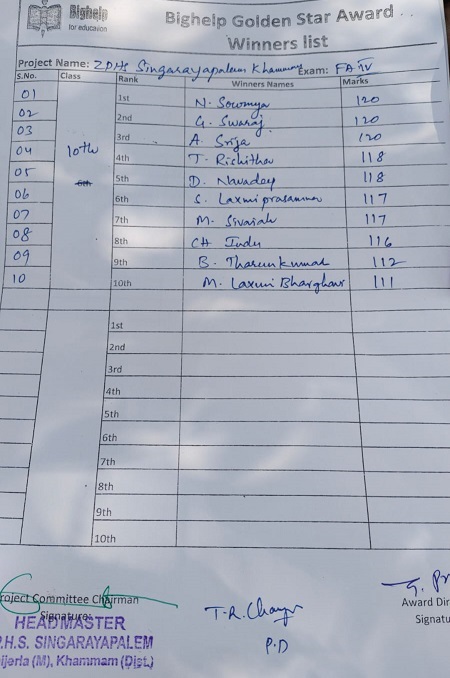 Bighelp
for education
Bighelp Golden Star Award
Winners list
Project Name: ZPHS Singarayapalem Khammam Exam: FA IV
S.No. Class Rank Winners Names Marks
01 10th 1st N. Sowmya 120
02 2nd G. Swaraj 120
03 3rd A. Srija 120
04 4th T. Rishitha 118
05 6th 5th D. 118
06 6th S. Laxmi prasanna 117
07 7th M. Sivaiah 117
08 8th CH Indu 116
09 9th B. Tharun kumar 112
10 10th M. Laxmi Bharghav 111
1st
2nd
3rd
4th
5th
6th
7th
8th
9th
10th
roject Committee Chairman
Signature
HEADMASTER
P.H.S. SINGARAYAPALEM
ijerla (M), Khammam (Dist.)
T.R.
P.D
Award Dir
Signatu